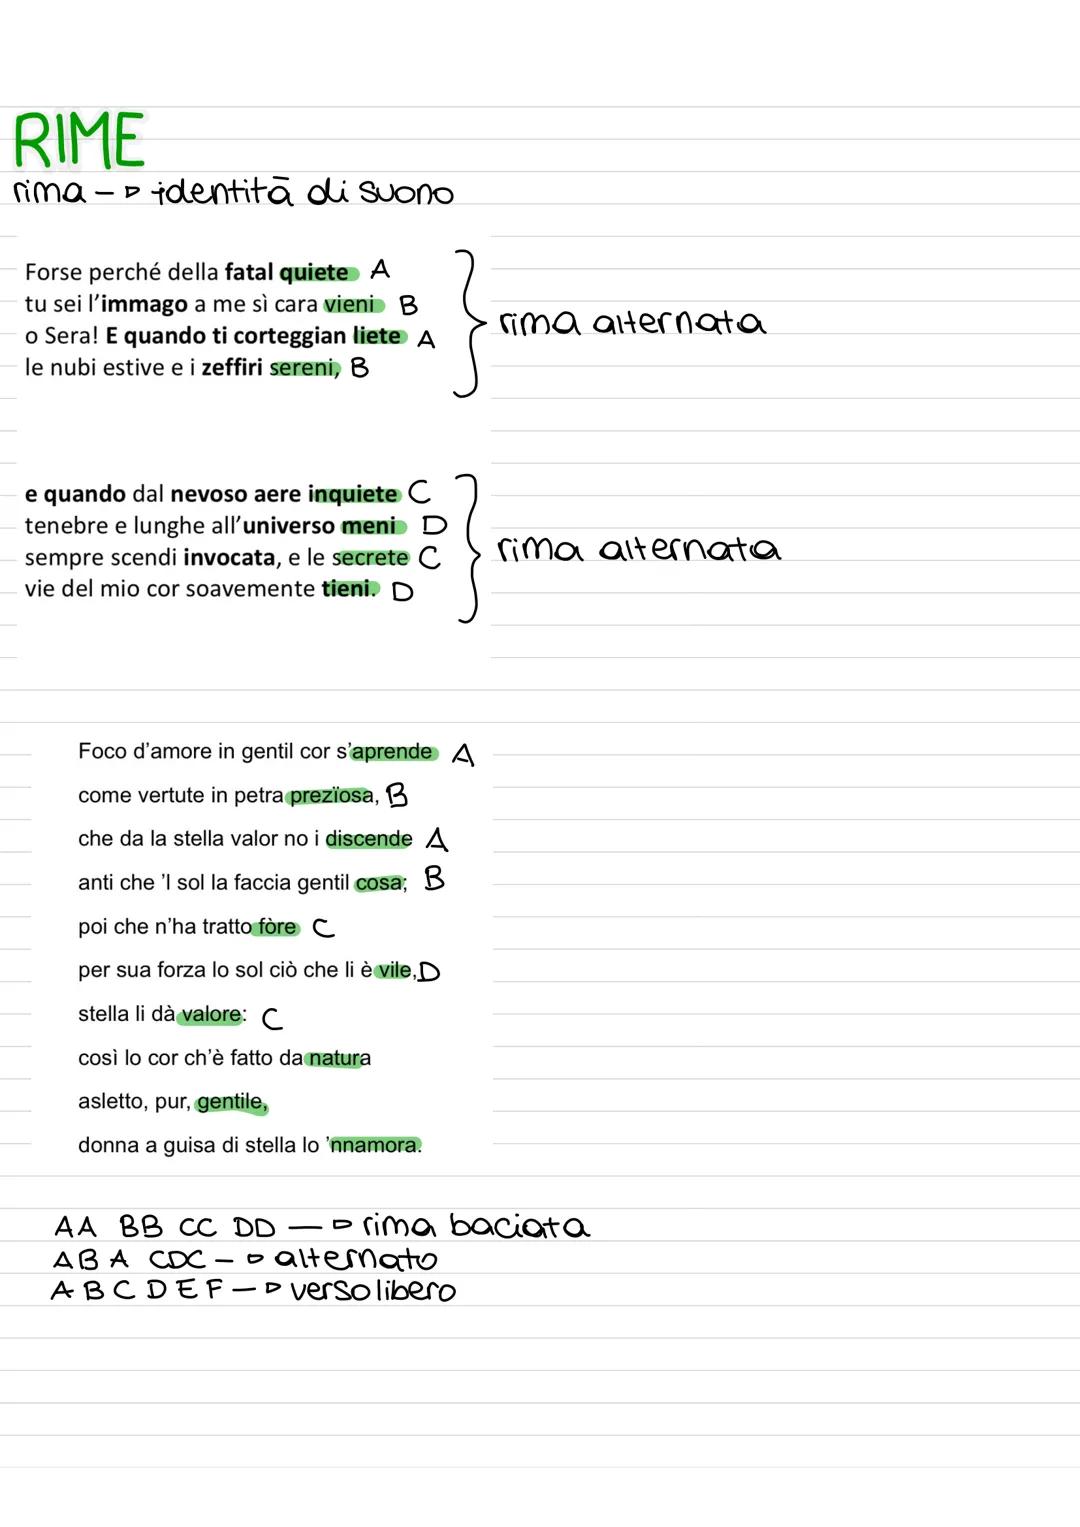 RIME
rima –▷ identità di suono
Forse perché della fatal quiete A
tu sei l'immago a me sì cara vieni B
o Sera! E quando ti corteggian liete A
le nubi estive e i zeffiri sereni, B
rima alternata
e quando dal nevoso aere inquiete C
tenebre e lunghe all'universo meni D
sempre scendi invocata, e le secrete C
vie del mio cor soavemente tieni. D
rima alternata
Foco d'amore in gentil cor s'aprende A
come vertute in petra prezïosa, B
che da la stella valor no i discende A
anti che 'l sol la faccia gentil cosa; B
poi che n'ha tratto fòre C
per sua forza lo sol ciò che li è vile, D
stella li dà valore: C
così lo cor ch'è fatto da natura
asletto, pur, gentile,
donna a guisa di stella lo 'nnamora.
AA BB CC DD –▷ rima baciata
ABA CDC –▷ alternato
A B C D E F –▷ verso libero